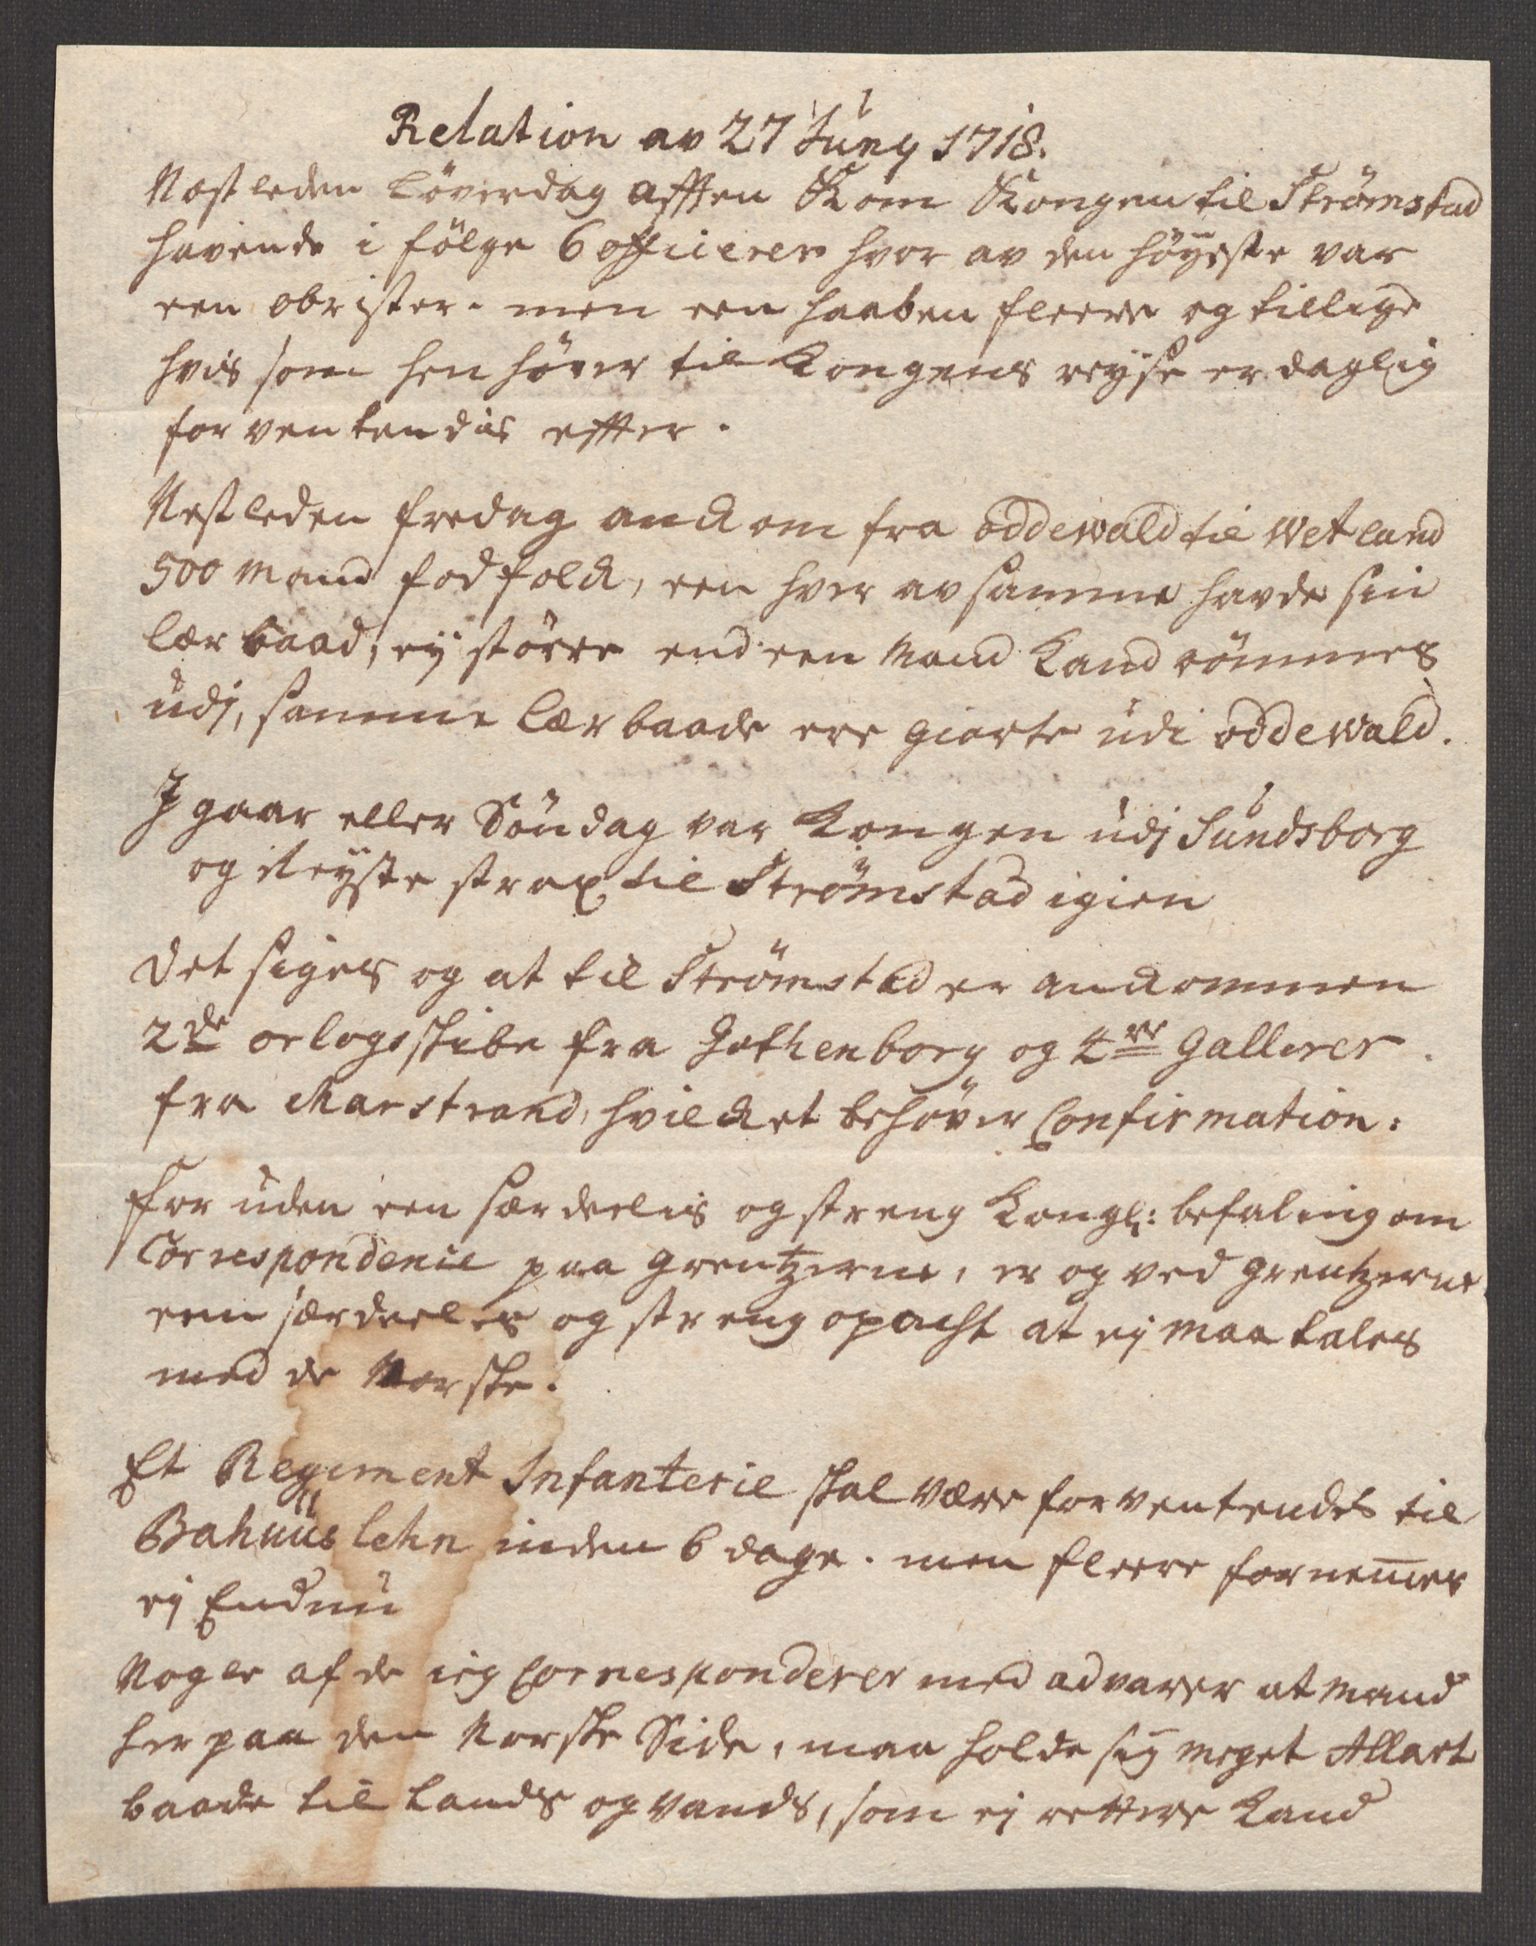 Relation av 27 Juny 1718.
Nestleden Löverdag afften Kom Kongen til Strømstad
havende i fölge 6 officierer hvor av den höyeste var
een obrister. men een haaben fleere og tillige
hvis som hen hører til Kongens reyse er daglig
forventendis effter.
Nestleden fredag ankom fra oddewald til Wetland
500 Mand fodfolk, een hver av samme havde sin
lær baad, ey större end een Mand Kand römmes
udj, samme lærbaade ere giorte udi oddewald.
J gaar eller Söndag var Kongen udj Sundsborg
og Reyste strax til Strømstad igien
Det siges og at til Strømstad er ankommen
2de orlogsskibe fra Gothenborg og 4re Gallerer
fra Marstrand, hvilket behöver Confirmation:
For uden een særdeelis og streng Kongl: befaling om
Correspondenie paa Grentzerne, er og ved Grentzerne
een særdeeles og streng opacht at ej maa tales
med de Norske.
Et Regiment Infanterie skal være forventendes til
Bahuus lehn inden 6 dage. men fleere fornemes
ej Endnu
Nogle af de ieg Corresponderer med advarer at mand
her paa den Norske Side, maa holde sig meget Allart
baade til Lands og vands, som ej rettere Kand